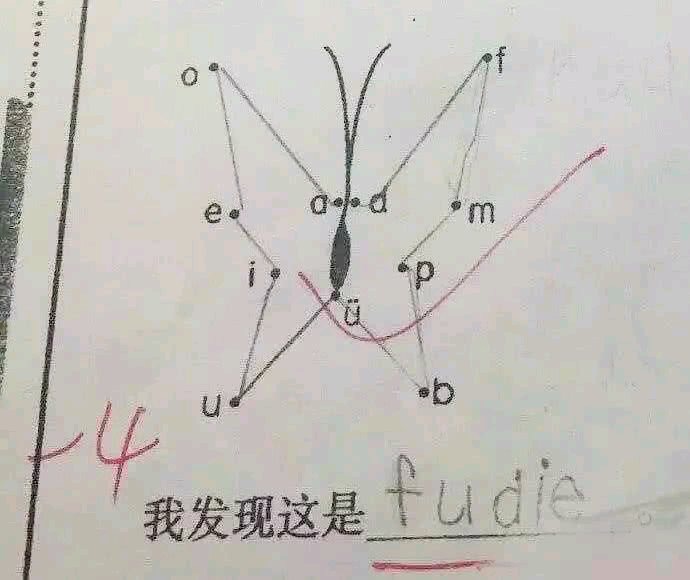 o f
a a
e m
i p
ü
u b
-4
我发现这是 fudie 。